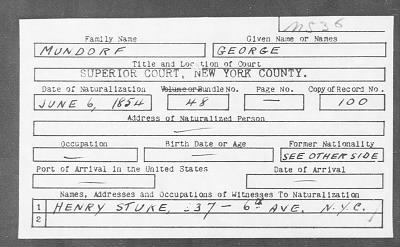 M536
Family Name Given Name or Names
MUNDORF GEORGE
Title and Location of Court
SUPERIOR COURT, NEW YORK COUNTY.
Date of Naturalization Volume or Bundle No. Page No. Copy of Record No.
JUNE 6, 1854 48 — 100
Address of Naturalized Person
—
Occupation Birth Date or Age Former Nationality
— — SEE OTHER SIDE
Port of Arrival in the United States Date of Arrival
— —
Names, Addresses and Occupations of Witnesses To Naturalization
1 HENRY STUKE, 37 - 6th AVE. N.Y.C.
2